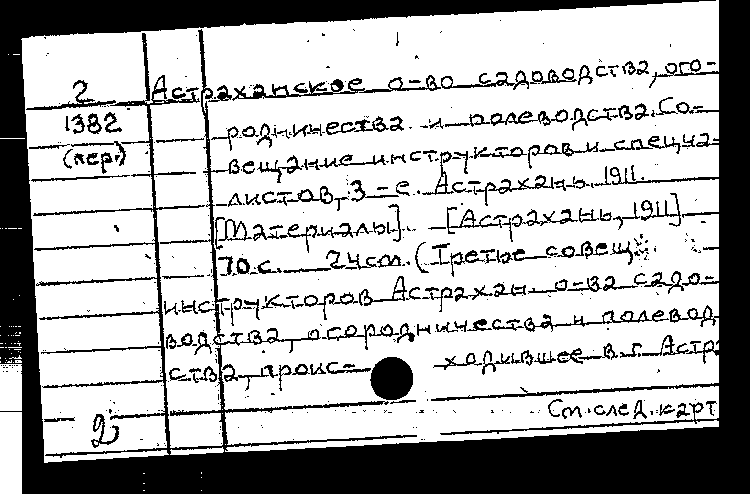 2 Астраханское о-во садоводства, ого-
1382 родничества и полеводства. Со-
(пер.) вещание инструкторов и специа-
листов, 3-е. Астрахань. 1911.
[Материалы]. [Астрахань, 1911]
70 с. 24 см. (Третье совещ.
инструкторов Астрахан. о-ва садо-
водства, огородничества и полевод
ства, проис- ходившее в г. Астра
См. след. карт